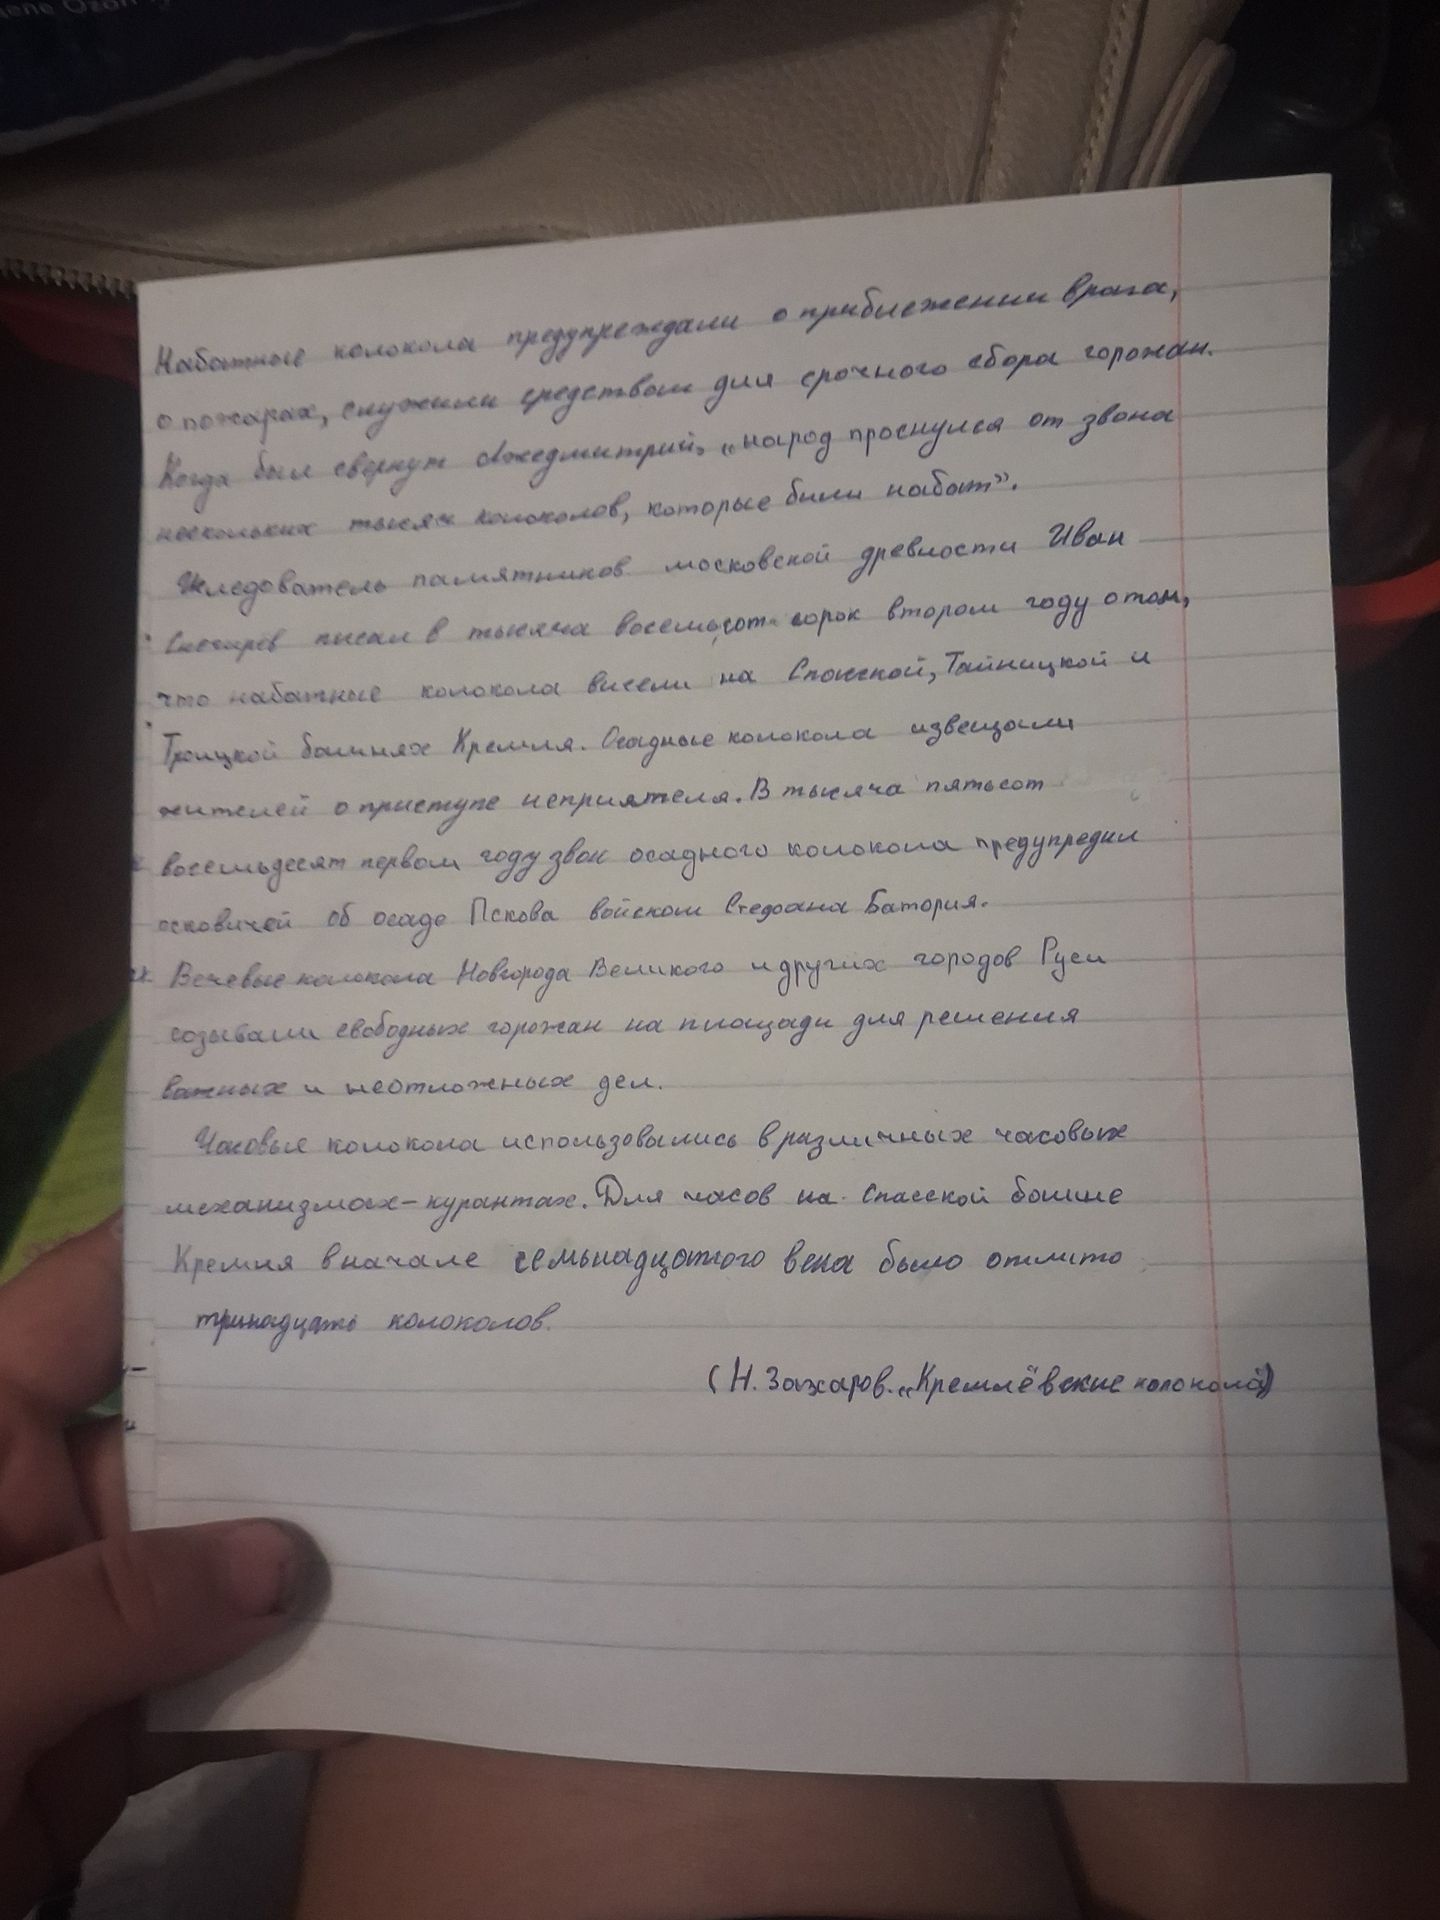 ene Ozon
Набатные колокола предупреждали о приближении врага,
о пожарах, служили средством для срочного сбора горожан.
Когда был свергнут Лжедмитрий, „народ проснулся от звона
нескольких тысяч колоколов, которые били набат”.
Исследователь памятников московской древности Иван
Снегирёв писал в тысяча восемьсот сорок втором году о том,
что набатные колокола висели на Спасской, Тайницкой и
Троицкой башнях Кремля. Осадные колокола извещали
жителей о приступе неприятеля. В тысяча пятьсот
восемьдесят первом году звон осадного колокола предупредил
псковичей об осаде Пскова войском Стефана Батория.
Вечевые колокола Новгорода Великого и других городов Руси
созывали свободных горожан на площади для решения
важных и неотложных дел.
Часовые колокола использовались в различных часовых
механизмах - курантах. Для часов на Спасской башне
Кремля вначале семьнадцатого века было отлито
тринадцать колоколов.
(Н. Захаров. „Кремлёвские колокола”)